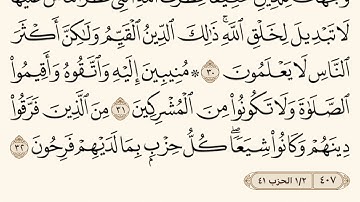 لَا تَبْدِيلَ لِخَلْقِ ٱللَّهِ ۚ ذَٰلِكَ ٱلدِّينُ ٱلْقَيِّمُ وَلَٰكِنَّ أَكْثَرَ
ٱلنَّاسِ لَا يَعْلَمُونَ ٣٠ ۞ مُنِيبِينَ إِلَيْهِ وَٱتَّقُوهُ وَأَقِيمُوا۟
ٱلصَّلَوٰةَ وَلَا تَكُونُوا۟ مِنَ ٱلْمُشْرِكِينَ ٣١ مِنَ ٱلَّذِينَ فَرَّقُوا۟
دِينَهُمْ وَكَانُوا۟ شِيَعًا ۖ كُلُّ حِزْبٍۭ بِمَا لَدَيْهِمْ فَرِحُونَ ٣٢
٤٠٧ ١/٢ الحزب ٤١